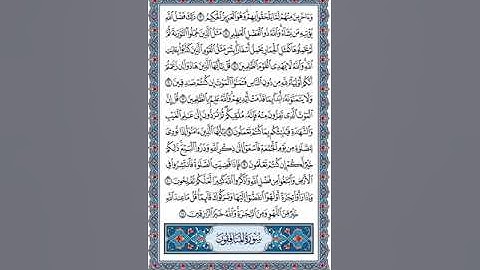 وَءَاخَرِينَ مِنْهُمْ لَمَّا يَلْحَقُوا۟ بِهِمْ وَهُوَ ٱلْعَزِيزُ ٱلْحَكِيمُ ٣ ذَٰلِكَ فَضْلُ ٱللَّهِ
يُؤْتِيهِ مَن يَشَآءُ وَٱللَّهُ ذُو ٱلْفَضْلِ ٱلْعَظِيمِ ٤ مَثَلُ ٱلَّذِينَ حُمِّلُوا۟ ٱلتَّوْرَىٰةَ ثُمَّ
لَمْ يَحْمِلُوهَا كَمَثَلِ ٱلْحِمَارِ يَحْمِلُ أَسْفَارًۢا بِئْسَ مَثَلُ ٱلْقَوْمِ ٱلَّذِينَ كَذَّبُوا۟ بِـَٔايَٰتِ
ٱللَّهِ وَٱللَّهُ لَا يَهْدِى ٱلْقَوْمَ ٱلظَّٰلِمِينَ ٥ قُلْ يَٰٓأَيُّهَا ٱلَّذِينَ هَادُوٓا۟ إِن زَعَمْتُمْ
أَنَّكُمْ أَوْلِيَآءُ لِلَّهِ مِن دُونِ ٱلنَّاسِ فَتَمَنَّوُا۟ ٱلْمَوْتَ إِن كُنتُمْ صَٰدِقِينَ ٦
وَلَا يَتَمَنَّوْنَهُۥٓ أَبَدًۢا بِمَا قَدَّمَتْ أَيْدِيهِمْ وَٱللَّهُ عَلِيمٌۢ بِٱلظَّٰلِمِينَ ٧ قُلْ إِنَّ
ٱلْمَوْتَ ٱلَّذِى تَفِرُّونَ مِنْهُ فَإِنَّهُۥ مُلَٰقِيكُمْ ثُمَّ تُرَدُّونَ إِلَىٰ عَٰلِمِ ٱلْغَيْبِ
وَٱلشَّهَٰدَةِ فَيُنَبِّئُكُم بِمَا كُنتُمْ تَعْمَلُونَ ٨ يَٰٓأَيُّهَا ٱلَّذِينَ ءَامَنُوٓا۟ إِذَا نُودِىَ
لِلصَّلَوٰةِ مِن يَوْمِ ٱلْجُمُعَةِ فَٱسْعَوْا۟ إِلَىٰ ذِكْرِ ٱللَّهِ وَذَرُوا۟ ٱلْبَيْعَ ذَٰلِكُمْ
خَيْرٌ لَّكُمْ إِن كُنتُمْ تَعْلَمُونَ ٩ فَإِذَا قُضِيَتِ ٱلصَّلَوٰةُ فَٱنتَشِرُوا۟ فِى
ٱلْأَرْضِ وَٱبْتَغُوا۟ مِن فَضْلِ ٱللَّهِ وَٱذْكُرُوا۟ ٱللَّهَ كَثِيرًا لَّعَلَّكُمْ تُفْلِحُونَ ١٠
وَإِذَا رَأَوْا۟ تِجَٰرَةً أَوْ لَهْوًا ٱنفَضُّوٓا۟ إِلَيْهَا وَتَرَكُوكَ قَآئِمًا قُلْ مَا عِندَ ٱللَّهِ
خَيْرٌ مِّنَ ٱللَّهْوِ وَمِنَ ٱلتِّجَٰرَةِ وَٱللَّهُ خَيْرُ ٱلرَّٰزِقِينَ ١١
سُورَةُ المُنَافِقُونَ